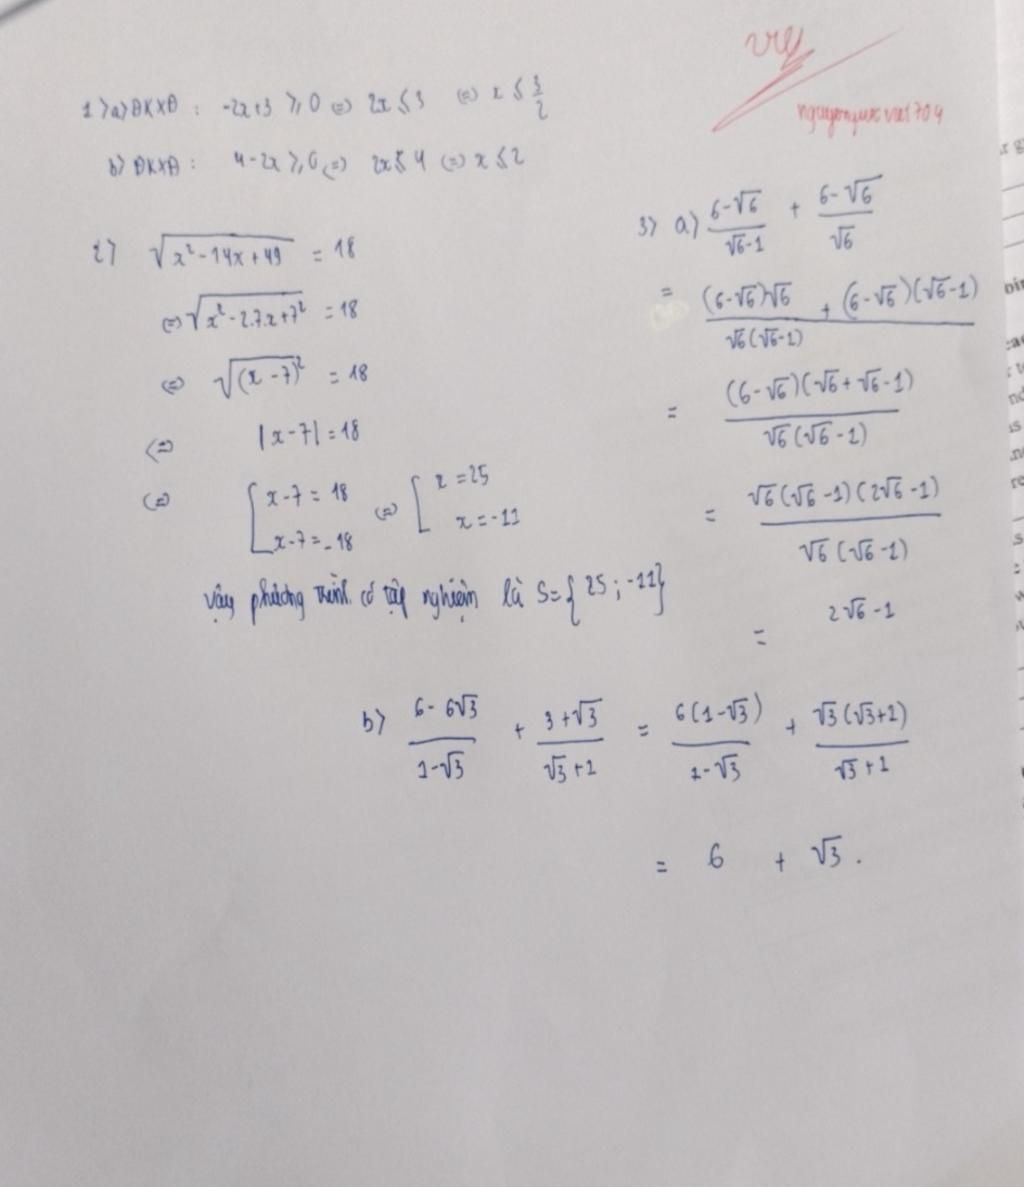 vy
nguyenquocvie1704
1>a) ĐKXĐ : -2x+3 ⩾ 0 (=) 2x ≤ 3 (=) x ≤ 3/2
b> ĐKXĐ : 4-2x ⩾ 0 (=) 2x ≤ 4 (=) x ≤ 2
2> √(x²-14x+49) = 18
(=) √(x²-2.7.x+7²) = 18
(=) √((x-7)²) = 18
(=) |x-7| = 18
(=) [ x-7 = 18 (=) [ x = 25
x-7 = -18 x = -11
Vậy phương trình có tập nghiệm là S={25 ; -11}
3> a) (6-√6)/(√6-1) + (6-√6)/√6
= ((6-√6)√6 + (6-√6)(√6-1))/(√6(√6-1))
= ((6-√6)(√6+√6-1))/(√6(√6-1))
= (√6(√6-1)(2√6-1))/(√6(√6-1))
= 2√6-1
b> (6-6√3)/(1-√3) + (3+√3)/(√3+1) = (6(1-√3))/(1-√3) + (√3(√3+1))/(√3+1)
= 6 + √3.